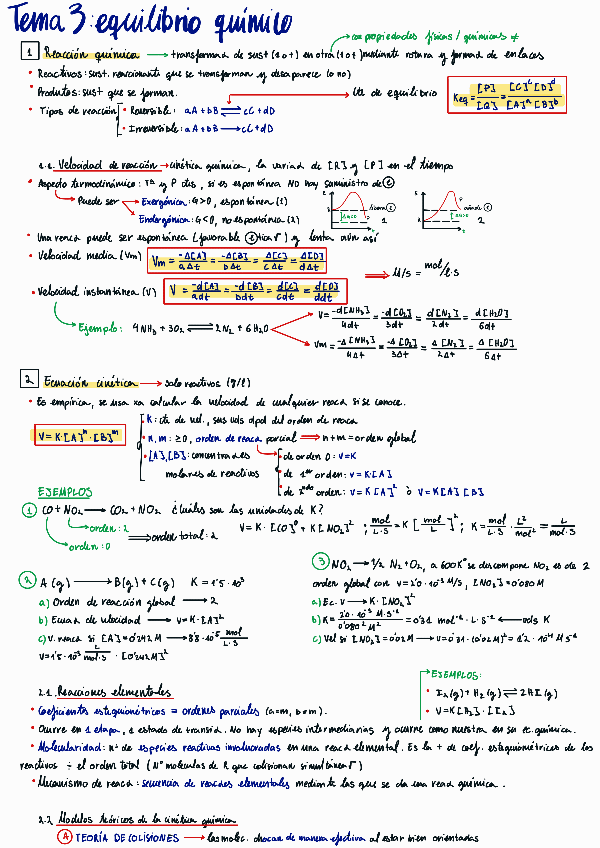 Tema 3: equilibrio químico
con propiedades físicas / químicas ≠
1 Reacción química → transformad de sust (1 o +) en otra (1 o +) mediante rotura y formad de enlaces
• Reactivos: sust. reaccionante que se transforman y desaparece (o no)
• Productos: sust que se forman.
cte de equilibrio
Keq = [P]/[Q] = [C]^c [D]^d / [A]^a [B]^b
• Tipos de reacción
• Reversible: aA + bB ⇌ cC + dD
• Irreversible: aA + bB → cC + dD
1.1. Velocidad de reacción → cinética química, la variad de [R] y [P] en el tiempo
• Aspecto termodinámico: Tª y P ctes, si es espontánea NO hay suministro de e
Puede ser
Exergónica: G>0, espontánea (1)
Endergónica: G<0, no espontánea (2)
libera e
1
añade e
2
• Una reacª puede ser espontánea (favorable) y lenta aun así
• Velocidad media (Vm)
Vm = -Δ[A]/aΔt = -Δ[B]/bΔt = Δ[C]/cΔt = Δ[D]/dΔt
⇒ M/s = mol/L·s
• Velocidad instantánea (V)
V = -d[A]/adt = -d[B]/bdt = d[C]/cdt = d[D]/ddt
Ejemplo: 4NH3 + 3O2 ⇌ 2N2 + 6H2O
V = -d[NH3]/4dt = -d[O2]/3dt = d[N2]/2dt = d[H2O]/6dt
Vm = -Δ[NH3]/4Δt = -Δ[O2]/3Δt = Δ[N2]/2Δt = Δ[H2O]/6Δt
2 Ecuación cinética → solo reactivos (g/l)
• Es empírica, se usa xa calcular la velocidad de cualquier reacª si se conoce.
V = K·[A]^n·[B]^m
• K: cte de vel., sus uds dpd del orden de reacª
• n, m: ≥0, orden de reacª parcial ⇒ n+m = orden global
• [A],[B]: concentrades molares de reactivos
• de orden 0: V=K
• de 1er orden: V=K·[A]
• de 2ndo orden: V=K·[A]² ó V=K[A][B]
EJEMPLOS
1 CO + NO2 → CO2 + NO2 ¿Cuáles son las unidades de K?
orden: 2
orden: 0
⇒ orden total: 2
V = K·[CO]⁰ + K[NO2]² ; mol/L·S = K[mol/L]² ; K = mol/L·S · L²/mol² = L/mol·S
2 A(g) → B(g) + C(g) K = 1'5·10⁻³
a) Orden de reacción global → 2
b) Ecuad de velocidad → V = K·[A]²
c) V. reacª si [A] = 0'242 M → 8'8·10⁻⁵ mol/L·S
V = 1'5·10⁻³ L/mol·S · [0'242M]²
3 NO2 → 1/2 N2 + O2, a 600Kº se descompone NO2 es de 2
orden global con V = 2'0·10⁻³ M/S, [NO2] = 0'080M
a) Ec. V → K·[NO2]²
b) K = 2'0·10⁻³ M·S⁻¹ / 0'080² M² = 0'31 mol⁻¹·L·S⁻¹ ← uds K
c) Vel si [NO2] = 0'02M → V = 0'31·(0'02M)² = 1'2·10⁻⁴ M S⁻¹
2.1. Reacciones elementales
• Coeficientes estequiométricos = ordenes parciales (a=m, b=n).
EJEMPLOS:
• I2(g) + H2(g) ⇌ 2HI(g)
• V = K[H2]·[I2]
• Ocurre en 1 etapa, 1 estado de transid. No hay especies intermediarias y ocurre como muestra en su ec. química.
• Molecularidad: Nº de especies reactivas involucradas en una reacª elemental. Es la + de coef. estequiométricos de los
reactivos ÷ el orden total (Nº moléculas de R que colisionan simultánea)
• Mecanismo de reacª: secuencia de reacdes elementales mediante las que se da una reacª química.
2.2 Modelos teóricos de la cinética química
A TEORÍA DE COLISIONES → las molec. chocan de manera efectiva al estar bien orientadas